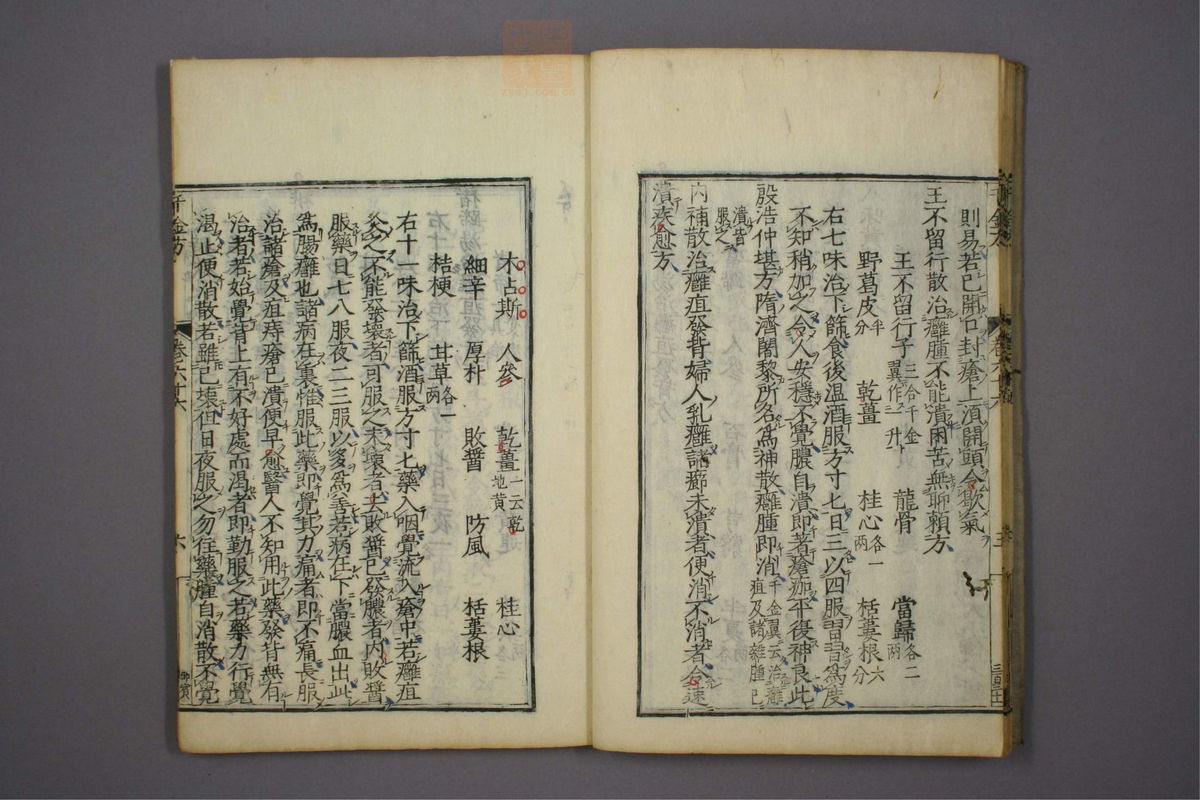 則易若已開口封瘡上須開頭令歇氣
王不留行散治癰腫不能潰困苦無聊賴方
王不留行子三合千金翼作三升 龍骨 當歸各二兩
野葛皮半分 乾薑 桂心各一兩 栝蔞根六分
右七味治下篩食後溫酒服方寸匕日三以四服習習爲度
不知稍加之令人安穩不覺膿自潰即著瘡痂平復神良此
殷浩仲堪方隋濟闍黎所名爲神散癰腫即消千金翼云治癰疽及諸雜腫已
潰皆服之
內補散治癰疽發背婦人乳癰諸癤未潰者便消不消者令速
潰疾愈方
木占斯 人參 乾薑一云乾地黃 桂心
細辛 厚朴 敗醬 防風 栝蔞根
桔梗 甘草各一兩
右十一味治下篩酒服方寸匕藥入咽覺流入瘡中若癰疽
灸之不能發壞者可服之未壞者去敗醬已發膿者內敗醬
服藥日七八服夜二三服以多爲善若病在下當膿血出此
爲腸癰也諸病在裏惟服此藥即覺其力痛者即不痛長服
治諸瘡及疽痔瘡已潰便早愈醫人不知用此藥發背無有
治者若始覺背上有不好處而渴者即勤服之若藥力行覺
渴止便消散若雖已壞但日夜服之勿住藥腫自消散不覺
千金方 卷六十六 六